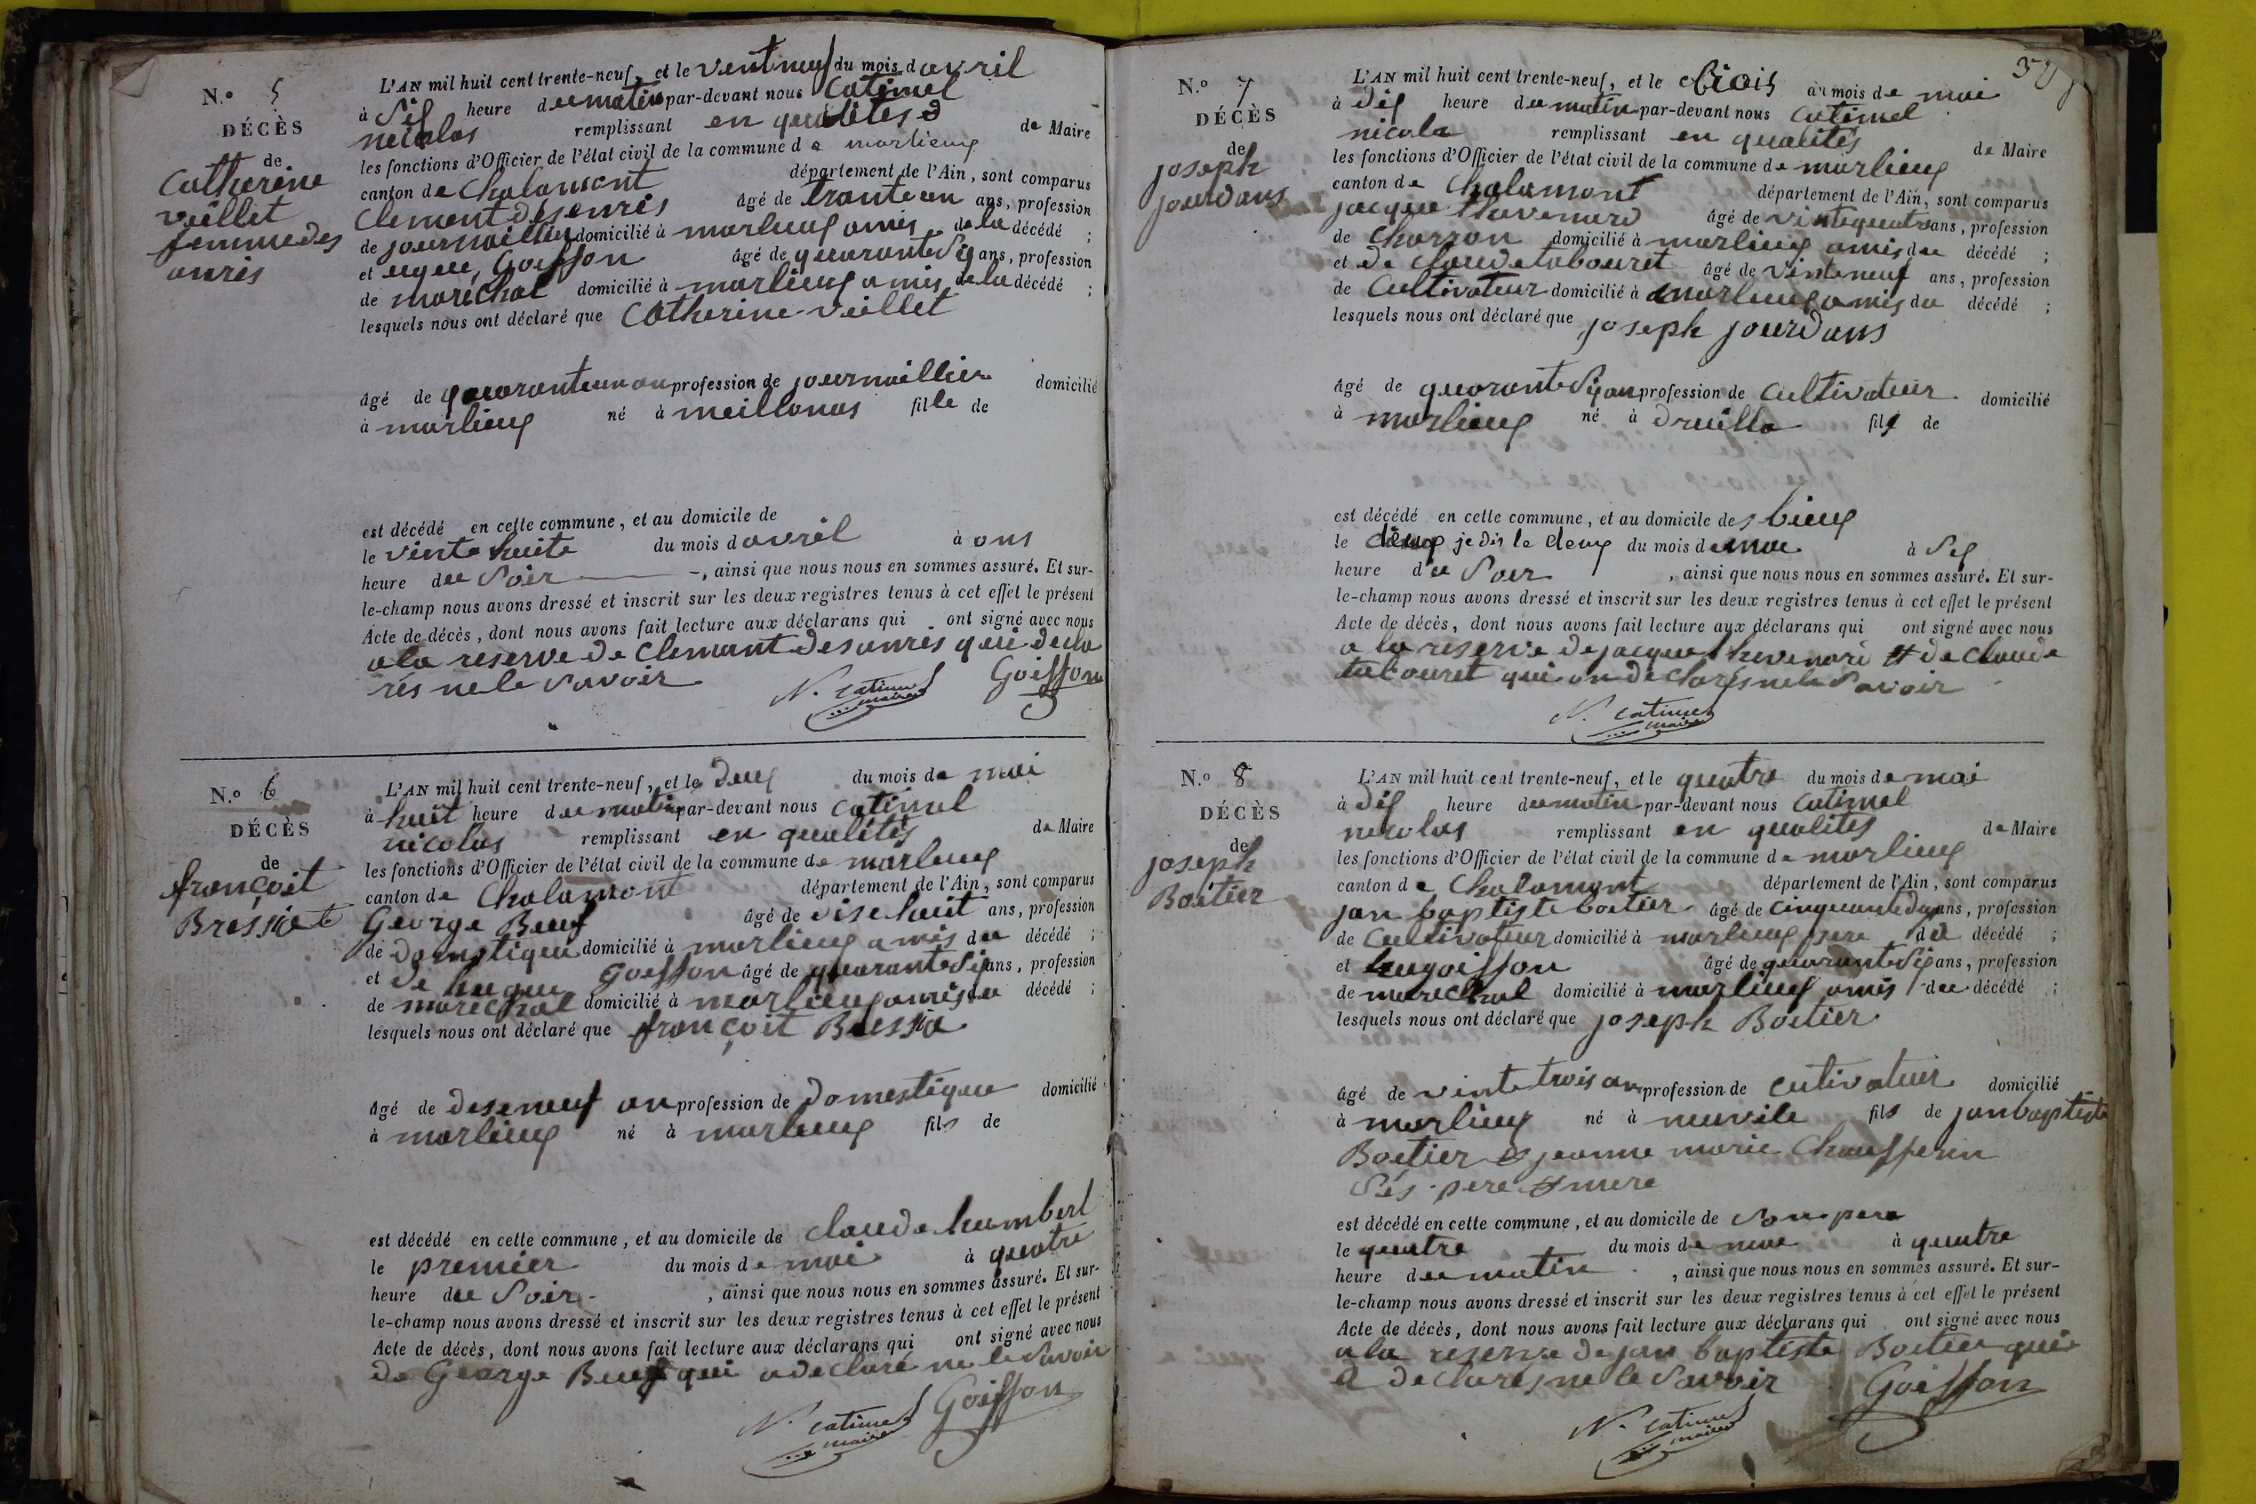 N.° 5
DÉCÈS
de
Catherine
veillet
femme des
anris
L'AN mil huit cent trente-neuf, et le ventneuf du mois d avril
à Sis heure du matin par-devant nous Catimel
nicolas remplissant en qualites d de Maire
les fonctions d'Officier de l'état civil de la commune d e marlieux
canton de Chalamont département de l'Ain, sont comparus
Clement desenris âgé de tranteun ans, profession
de journaillier domicilié à marlieux amis de la décédé ;
et ugue, Goiffon âgé de quarante Sis ans, profession
de maréchal domicilié à marlieux amis de la décédé ;
lesquels nous ont déclaré que Catherine veillet
âgé de quaranteun an profession de journaillier domicilié
à marlieux né à meillonas fille de
est décédé en cette commune, et au domicile de
le vinte huite du mois d avril à ons
heure du Soir —, ainsi que nous nous en sommes assuré. Et sur-
le-champ nous avons dressé et inscrit sur les deux registres tenus à cet effet le présent
Acte de décès, dont nous avons fait lecture aux déclarans qui ont signé avec nous
a la reserve de Clemant desanres qui decla
rés ne le Savoir
N. Catimel maire
Goiffon
N.° 6
DÉCÈS
de
françoit
Bressiat
L'AN mil huit cent trente-neuf, et le deux du mois de mai
à huit heure du matin par-devant nous Catimel
nicolas remplissant en qualités de Maire
les fonctions d'Officier de l'état civil de la commune de marlieux
canton de Chalamont département de l'Ain, sont comparus
George Beuf âgé de dise huit ans, profession
de domestique domicilié à marlieux amis du décédé ;
et de hugue goiffon âgé de quarante Sis ans, profession
de maréchal domicilié à marlieux amis du décédé ;
lesquels nous ont déclaré que françoit Bressia
âgé de diseneuf an profession de domestique domicilié
à marlieux né à marlieux fils de
est décédé en cette commune, et au domicile de claude humbert
le premier du mois de mai à quatre
heure du Soir , ainsi que nous nous en sommes assuré. Et sur-
le-champ nous avons dressé et inscrit sur les deux registres tenus à cet effet le présent
Acte de décès, dont nous avons fait lecture aux déclarans qui ont signé avec nous
de George Beuf qui a déclaré ne le Savoir
N. Catimel maire
Goiffon
N.° 7
DÉCÈS
de
joseph
jourdans
L'AN mil huit cent trente-neuf, et le trois du mois de mai
à dis heure du matin par-devant nous Catimel
nicola remplissant en qualités de Maire
les fonctions d'Officier de l'état civil de la commune de marlieux
canton de Chalamont département de l'Ain, sont comparus
jacque thevenard âgé de vintequatre ans, profession
de Charron domicilié à marlieux amis du décédé ;
et de Claude tabouret âgé de vinteneuf ans, profession
de Cultivateur domicilié à marlieux amis du décédé ;
lesquels nous ont déclaré que joseph jourdans
âgé de quarante Sis an profession de Cultivateur domicilié
à marlieux né à druilla fils de
est décédé en cette commune, et au domicile de s bieux
le deux je dis le deux du mois de mai à Sis
heure du Soir , ainsi que nous nous en sommes assuré. Et sur-
le-champ nous avons dressé et inscrit sur les deux registres tenus à cet effet le présent
Acte de décès, dont nous avons fait lecture aux déclarans qui ont signé avec nous
a la réserve de jacque thevenard et de claude
tabouret qui on déclarés ne le Savoir
N. Catimel maire
N.° 8
DÉCÈS
de
joseph
Boitier
L'AN mil huit cent trente-neuf, et le quatre du mois de mai
à dis heure du matin par-devant nous Catimel
nicolas remplissant en qualites de Maire
les fonctions d'Officier de l'état civil de la commune de marlieux
canton de Chalamont département de l'Ain, sont comparus
jan baptiste boitier âgé de cinquante deux ans, profession
de Cultivateur domicilié à marlieux pere du décédé ;
et hugoiffon âgé de quarante Sis ans, profession
de marechal domicilié à marlieux amis du décédé ;
lesquels nous ont déclaré que joseph Boitier
âgé de vinte trois an profession de cutivateur domicilié
à marlieux né à neuvile fils de jan baptiste
Boitier et jeanne marie Chaufferin
Sés pere et mere
est décédé en cette commune, et au domicile de Son pere
le quatre du mois de mai à quatre
heure du matin , ainsi que nous nous en sommes assuré. Et sur-
le-champ nous avons dressé et inscrit sur les deux registres tenus à cet effet le présent
Acte de décès, dont nous avons fait lecture aux déclarans qui ont signé avec nous
a la reserve de jan baptiste Boitier qui
a declarés ne le Savoir
Goiffon
N. Catimel maire